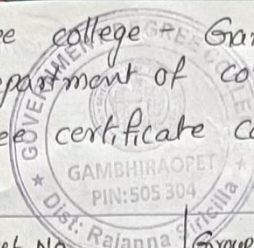 ee college Ga
partment of co
ee certificate C
GOVERNMENT DEGREE COLLEGE
GAMBHIRAOPET
PIN:505 304
★ Dist: Rajanna Siricilla ★
Group